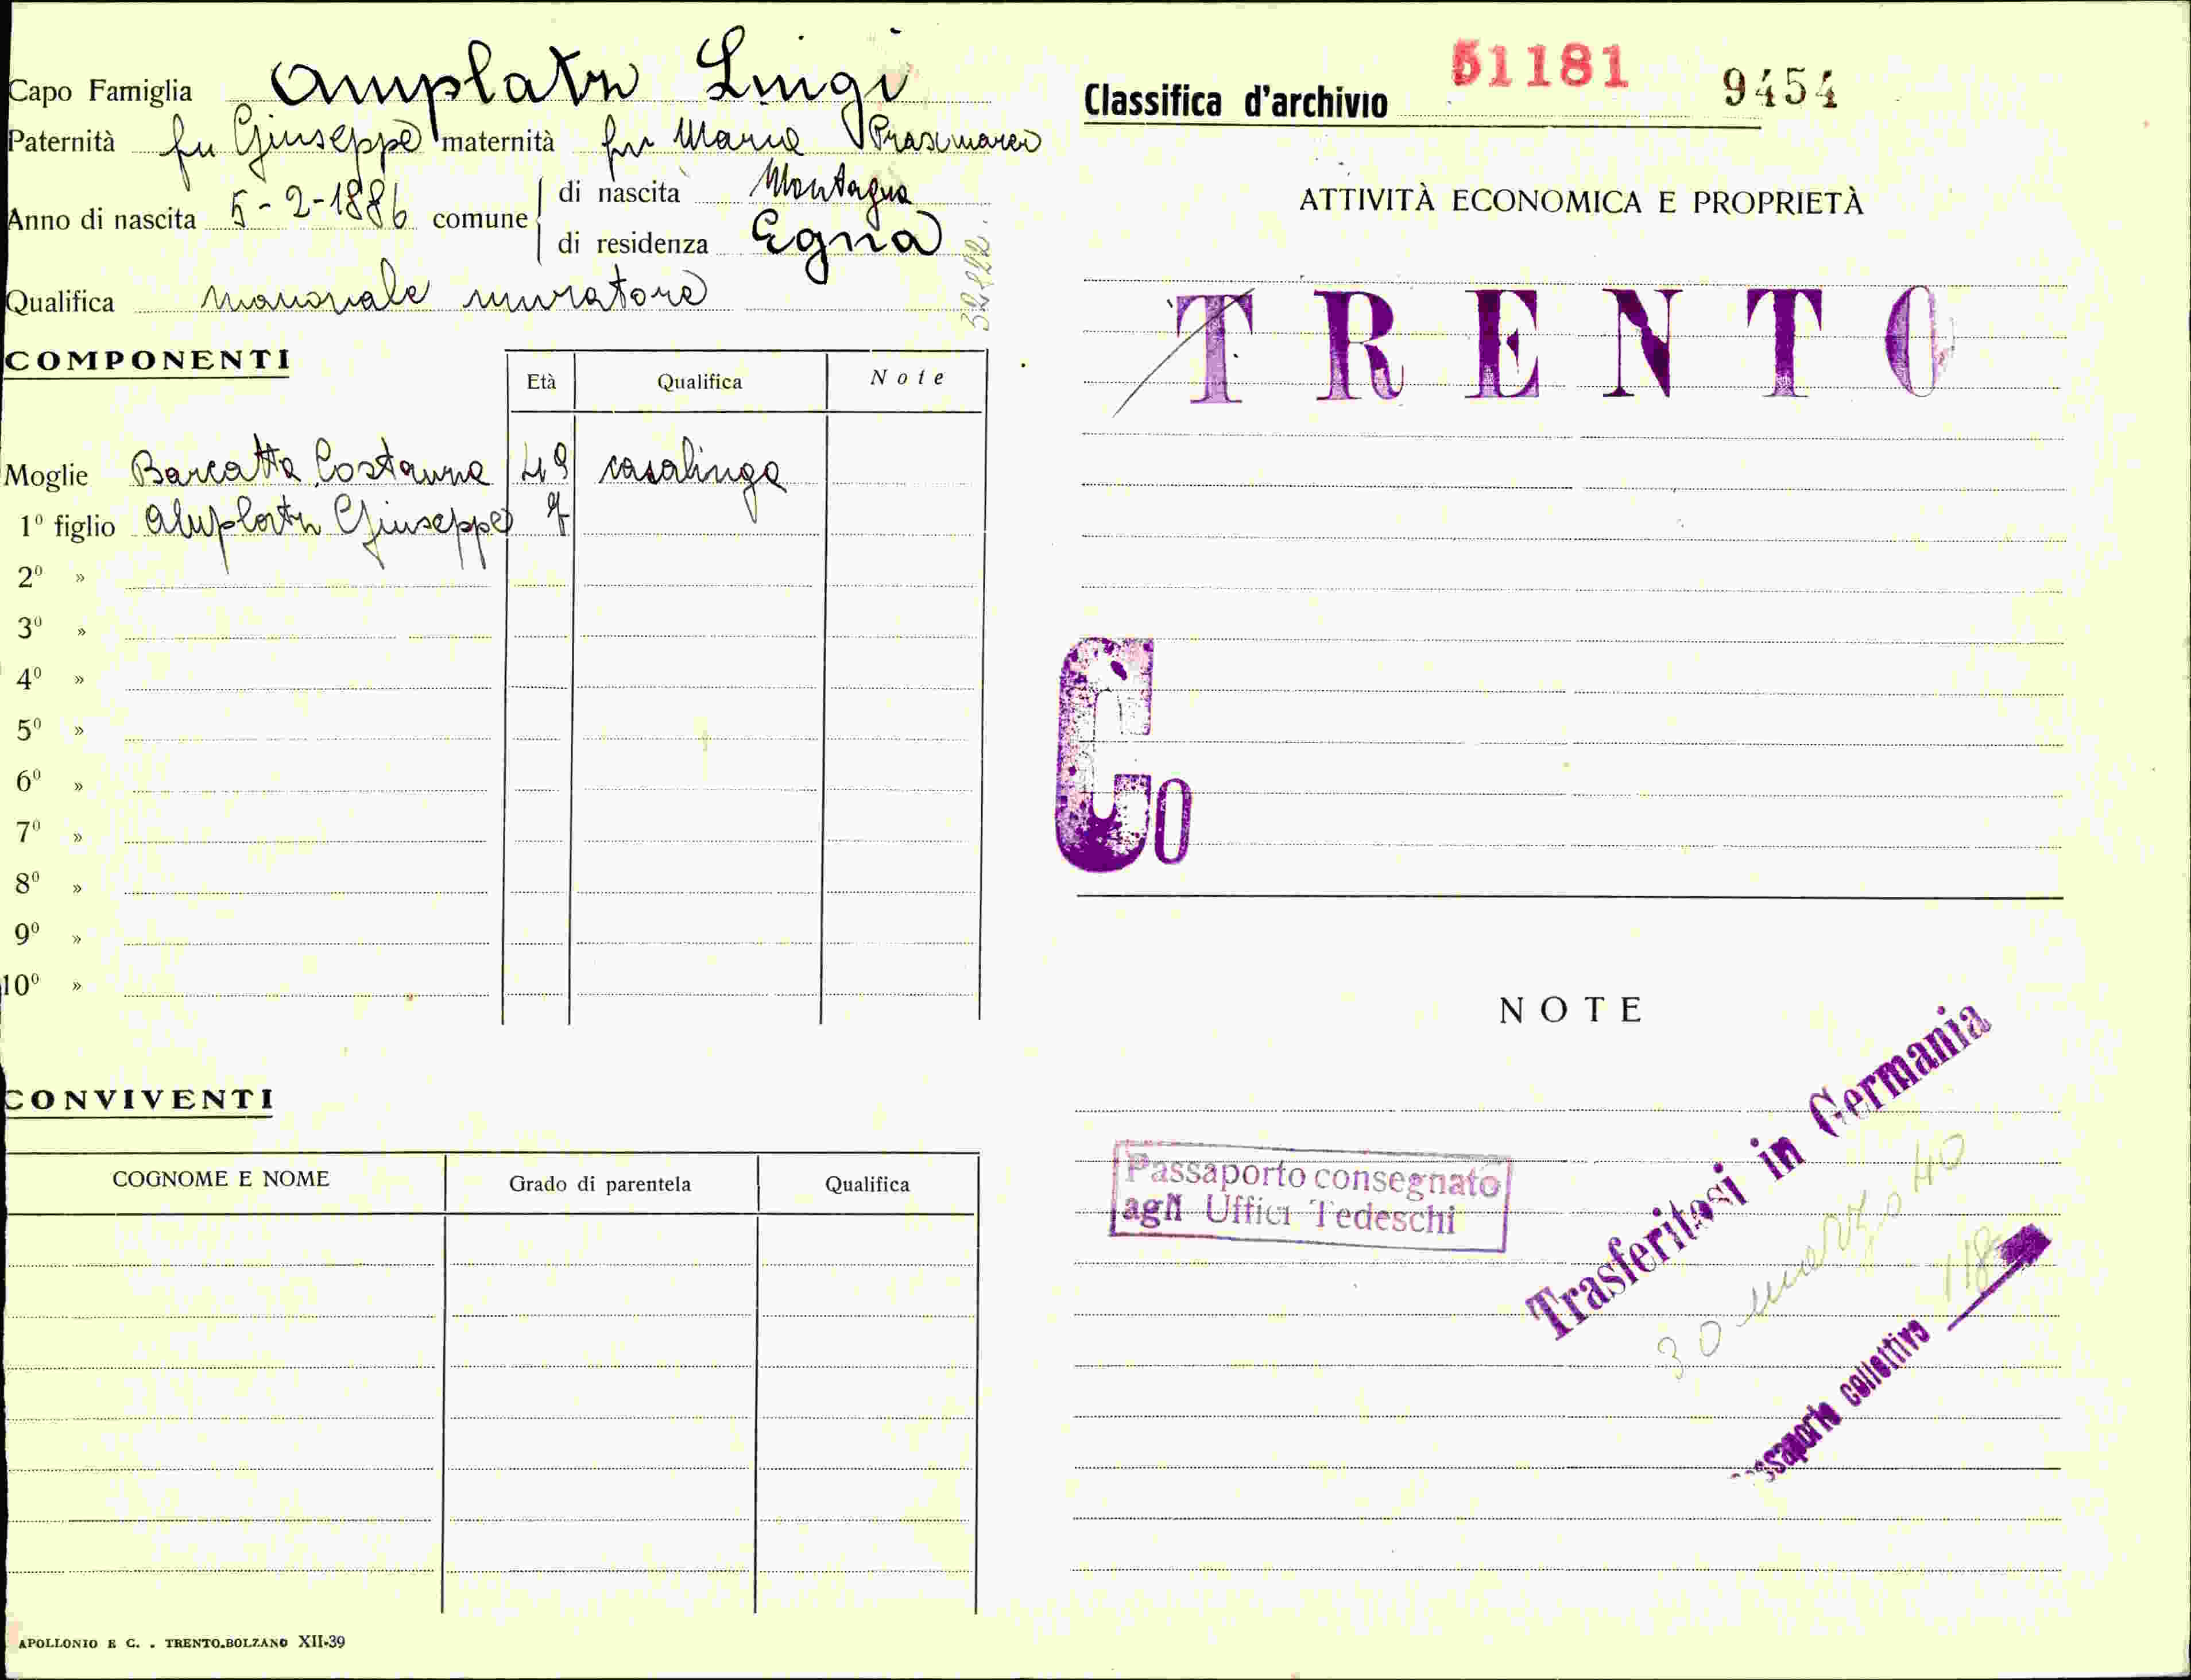 Capo Famiglia Amplatz Luigi
Paternità fu Giuseppe maternità fu Maria
Anno di nascita 5-2-1886 comune di nascita Montagna
di residenza Egna
Qualifica manovale muratore
COMPONENTI
Età Qualifica Note
Moglie Barcatta Costanna 49 casalinga
1º figlio Amplatz Giuseppe
2º »
3º »
4º »
5º »
6º »
7º »
8º »
9º »
10º »
CONVIVENTI
COGNOME E NOME Grado di parentela Qualifica
APOLLONIO E C. . TRENTO-BOLZANO XII-39
Classifica d'archivio 51181 9454
ATTIVITÀ ECONOMICA E PROPRIETÀ
TRENTO
Co
NOTE
Trasferitosi in Germania
30 marzo 40
Passaporto consegnato
agli Uffici Tedeschi
118
collettivo